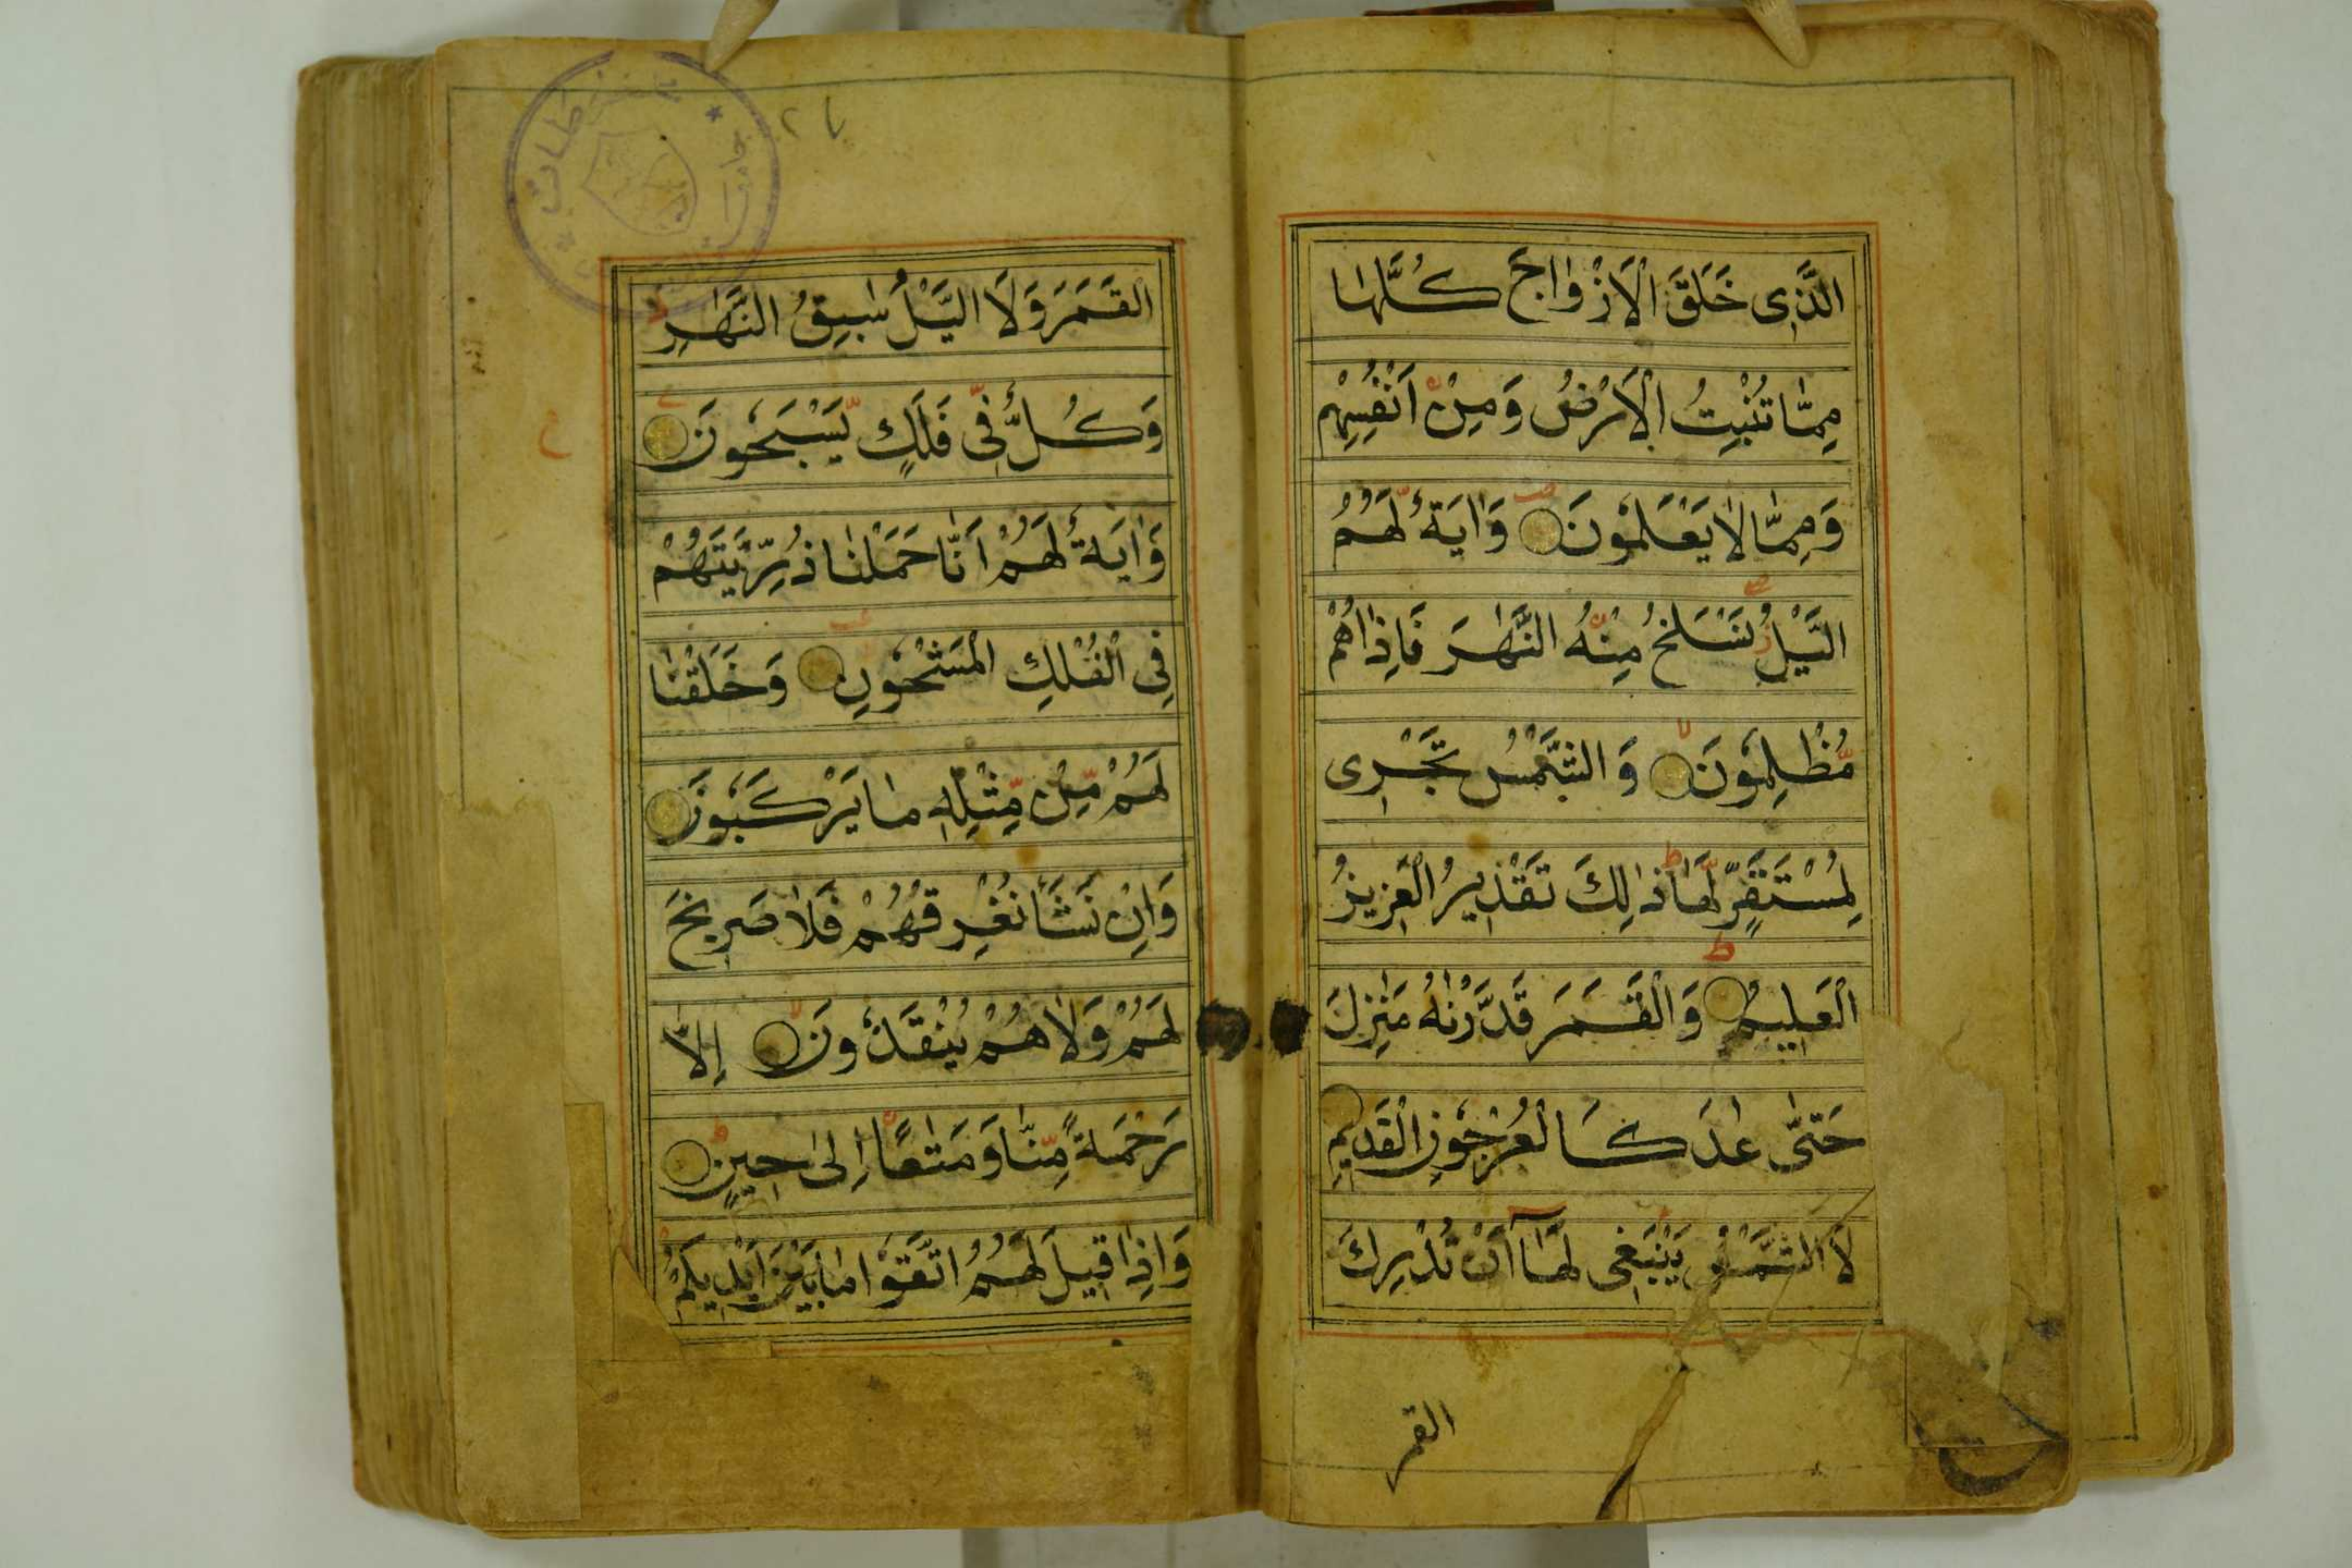 الَّذِی خَلَقَ الْاَزْوٰاجَ كُلَّهٰا
مِمّٰا تُنْبِتُ الْاَرْضُ وَمِنْ اَنْفُسِهِمْ
وَمِمّٰا لٰا یَعْلَمُونَ وَاٰیَةٌ لَهُمُ
الَّیْلُ نَسْلَخُ مِنْهُ النَّهٰارَ فَاِذٰا هُمْ
مُظْلِمُونَ وَ الشَّمْسُ تَجْرِی
لِمُسْتَقَرٍّ لَهٰا ذٰلِكَ تَقْدِیرُ الْعَزِیزِ
الْعَلِیمِ وَالْقَمَرَ قَدَّرْنٰهُ مَنٰزِلَ
حَتّٰی عٰادَ كَالْعُرْجُونِ الْقَدِیمِ
لَا الشَّمْسُ یَنْبَغِی لَهٰآ اَنْ تُدْرِكَ
القمر
القَمَرَ وَلَا الَّیْلُ سٰبِقُ النَّهٰارِ
وَكُلٌّ فِی فَلَكٍ یَسْبَحُونَ
وَاٰیَةٌ لَهُمْ اَنّٰا حَمَلْنٰا ذُرِّیَّتَهُمْ
فِی الْفُلْكِ الْمَشْحُونِ وَخَلَقْنٰا
لَهُمْ مِنْ مِثْلِهِ مٰا یَرْكَبُونَ
وَاِنْ نَشَأْ نُغْرِقْهُمْ فَلٰا صَرِیخَ
لَهُمْ وَلٰا هُمْ یُنْقَذُونَ اِلّٰا
رَحْمَةً مِنّٰا وَمَتٰعًا اِلیٰ حِینٍ
وَاِذٰا قِیلَ لَهُمُ اتَّقُوْا مٰا بَیْنَ اَیْدِیكُمْ